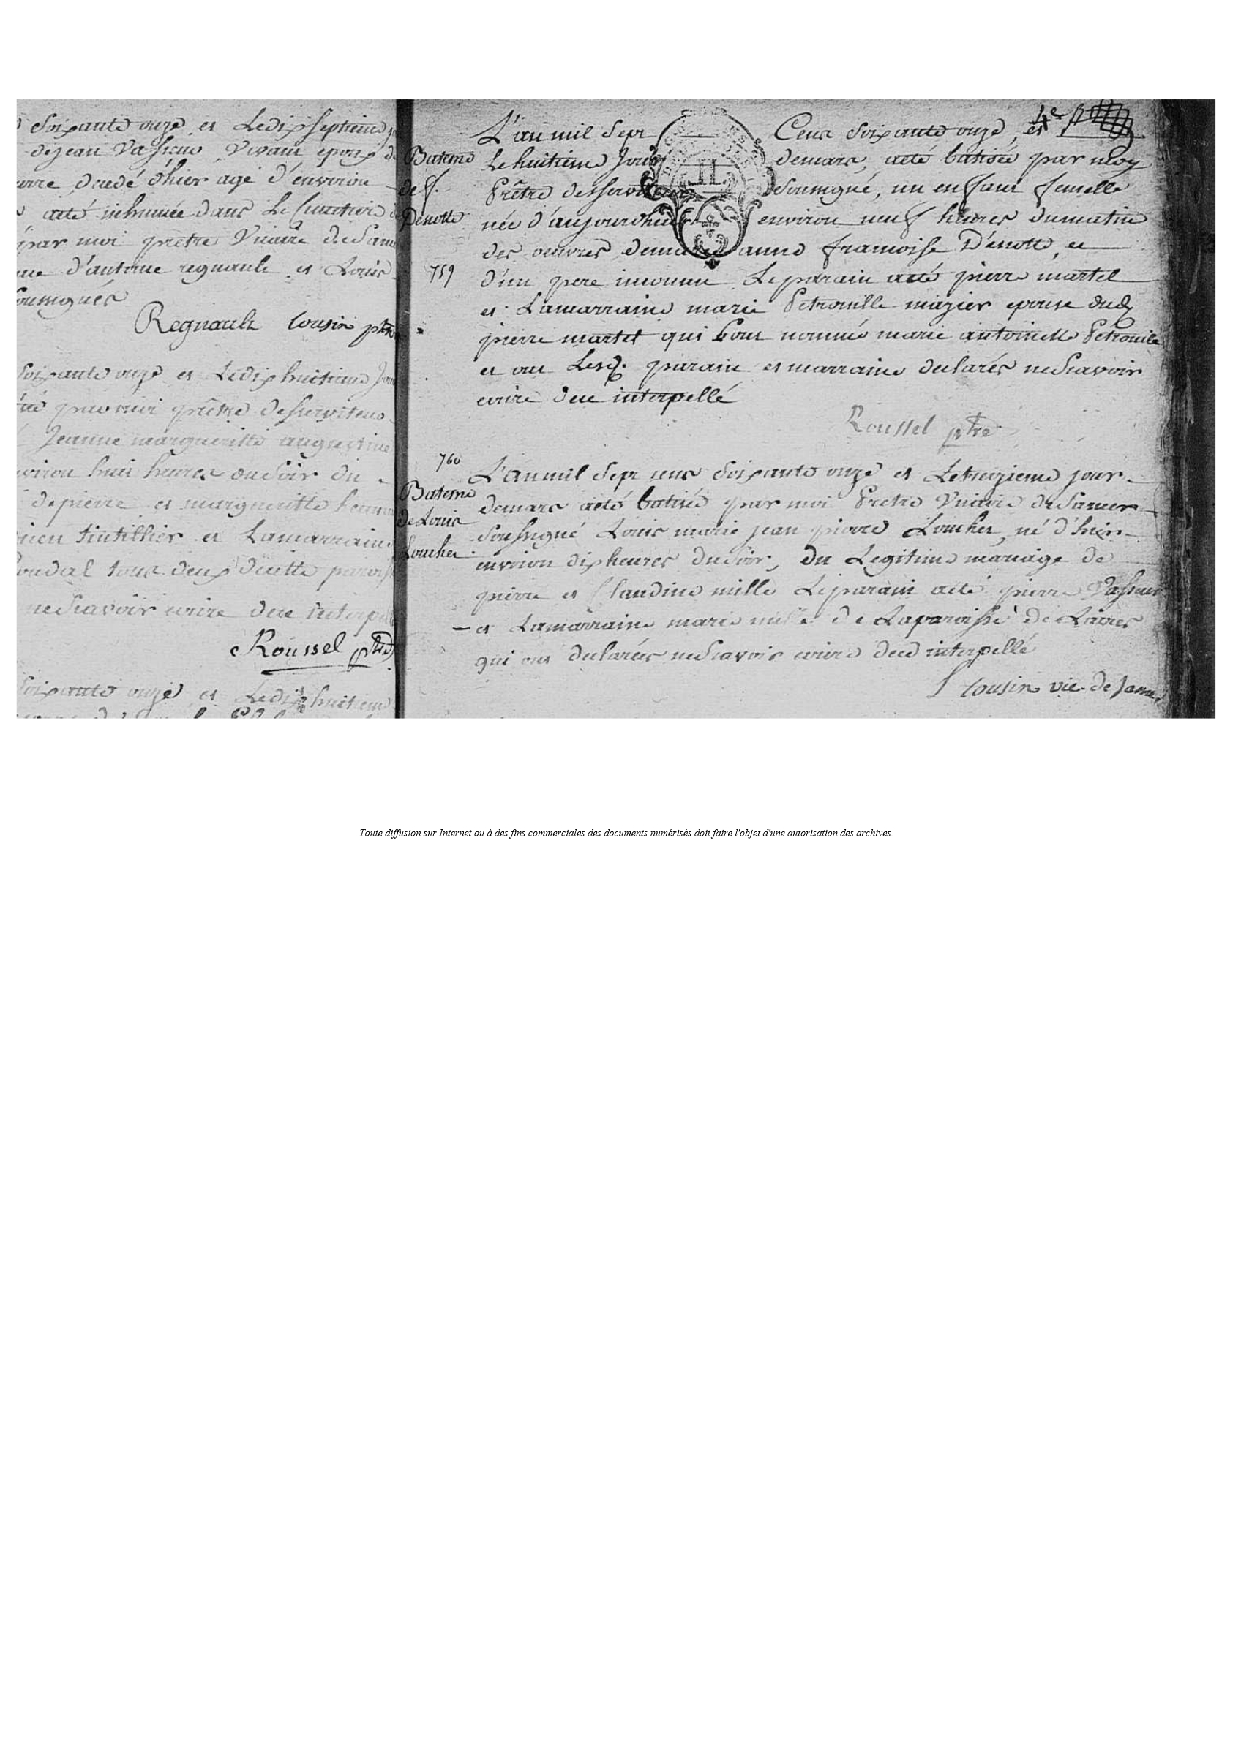 Soixante onze et Le dix septieme
de jean Vasseur Vivant epoux de
décédé d'hier agé d'environ
a été inhumée dans Le Cimetiere
par moi prêtre Vicaire de Samer
d'antoine regnault et Louis
soussignés
Regnault Cousin ptre
Soixante onze et Le dix huitieme
par moi prêtre desserviteur
Jeanne margueritte augustine
environ huit heures du Soir du
de pierre et margueritte
tintillier et La marraine
tous deux de cette paroisse
ne Scavoir ecrire de ce interpellé
Roussel ptre
Soixante onze et Le dix huitieme
Bateme
de f.
Denotte
759
L'an mil Sept Cent Soixante onze, et
Le huitieme Jour de mars, a eté batisée par moy
Prêtre desserviteur Soussigné, un enfant femelle
née d'aujourdhui environ neuf heures du matin
des œuvres de marie anne francoise Denotte et
d'un pere inconnu. Le parain a eté pierre martel
et La marraine marie Petronille magier epouse dudq
pierre martel qui L'ont nommé marie antoinette Petronille
et ont Lesq. parain et marraine declarés ne Scavoir
ecrire de ce interpellé
Roussel ptre
760
Bateme
de Louis
Loucher
L'an mil Sept cent Soixante onze et Le treizieme jour
de mars a eté batisé par moi Pretre Vicaire de Samer
Soussigné Louis marie jean pierre Loucher, né d'hier
environ dix heures du Soir, du Legitime mariage de
pierre et Claudine mille Le parain a eté pierre Vasseur
et La marraine marie mille de La paroisse de
qui ont declarés ne Scavoir ecrire de ce interpellé
Cousin vic. de Samer
Toute diffusion sur Internet ou à des fins commerciales des documents numérisés doit faire l'objet d'une autorisation des archives